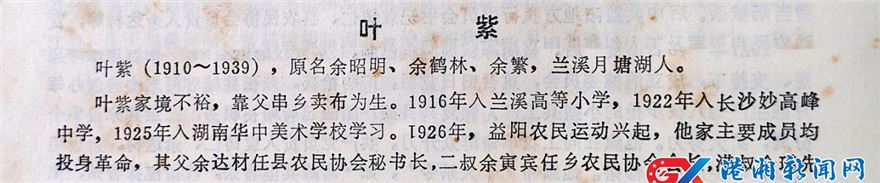 叶 紫
叶紫(1910～1939)，原名余昭明、余鹤林、余繁，兰溪月塘湖人。
叶紫家境不裕，靠父串乡卖布为生。1916年入兰溪高等小学，1922年入长沙妙高峰
中学，1925年入湖南华中美术学校学习。1926年，益阳农民运动兴起，他家主要成员均
投身革命，其父余达材任县农民协会秘书长，二叔余寅宾任乡农民协会会长，满叔余璜先
港湘新闻网